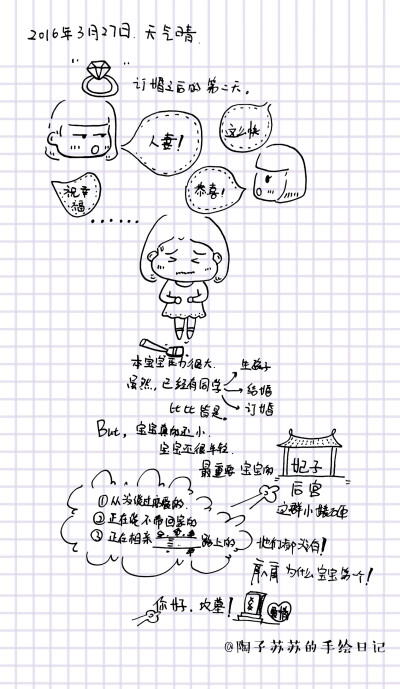 2016年3月27日. 天气晴.
订婚之后的第二天.
人妻!
这么快
恭喜!
祝幸福
......
本宝宝压力很大.
虽然,已经有同学
生孩子
结婚
订婚
比比皆是
But, 宝宝真的还小.
宝宝还很年轻.
最重要 宝宝的
妃子
后宫
这群小婊砸
①从没谈过恋爱的
②正在谈不带回家的
③正在相亲 路上的
他们都没有!
为什么宝宝第一个!
你好, 坟墓!
爱情
@陶子苏苏的手绘日记